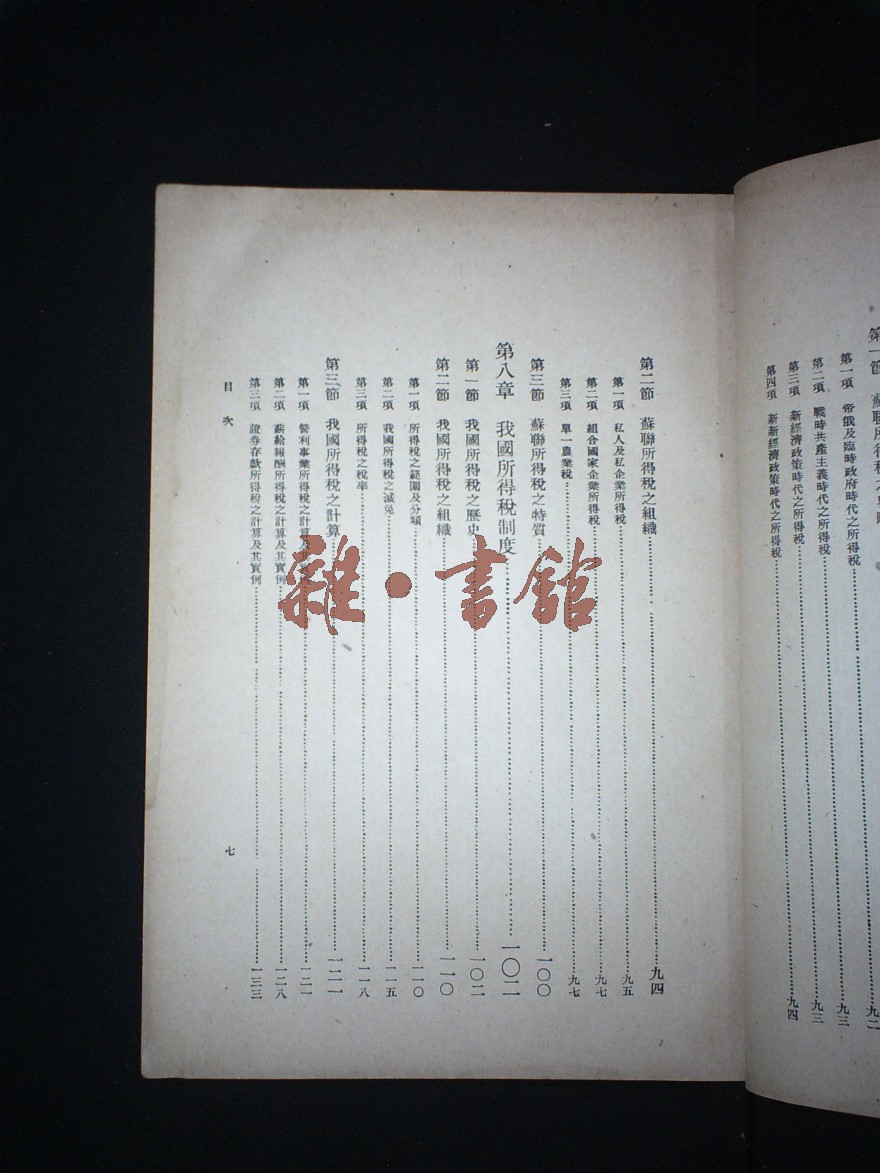 第一節 蘇聯所得稅之史略……九二
第一項 帝俄及臨時政府時代之所得稅……九三
第二項 戰時共產主義時代之所得稅……九三
第三項 新經濟政策時代之所得稅……九四
第四項 新新經濟政策時代之所得稅
第二節 蘇聯所得稅之組織……九四
第一項 私人及私企業所得稅……九五
第二項 組合國家企業所得稅……九七
第三項 單一農業稅……九七
第三節 蘇聯所得稅之特質……一〇〇
第八章 我國所得稅制度……一〇二
第一節 我國所得稅之歷史……一〇二
第二節 我國所得稅之組織……一一〇
第一項 所得稅之範圍及分類……一一〇
第二項 我國所得稅之減免……一一五
第三項 所得稅之稅率……一一八
第三節 我國所得稅之計算……一二一
第一項 營利事業所得稅之計算及其實例……一二一
第二項 薪給報酬所得稅之計算及其實例……一二八
第三項 證券存款所得稅之計算及其實例……一三三
目次 七
雜·書館